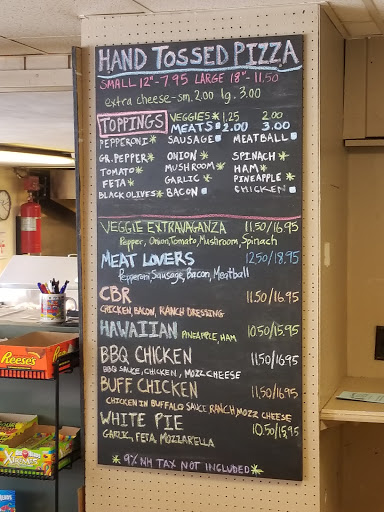 HAND TOSSED PIZZA
SMALL 12"-7.95 LARGE 18"-11.50
extra cheese-sm. 2.00 lg. 3.00
TOPPINGS VEGGIES* 1.25 2.00
MEATS 2.00 3.00
PEPPERONI* SAUSAGE MEATBALL
GR. PEPPER* ONION* SPINACH*
TOMATO* MUSHROOM* HAM*
FETA* GARLIC* PINEAPPLE*
BLACK OLIVES* BACON CHICKEN
VEGGIE EXTRAVAGANZA 11.50/16.95
Pepper, Onion, Tomato, Mushroom, Spinach
MEAT LOVERS 12.50/18.95
Pepperoni, Sausage, Bacon, Meatball
CBR 11.50/16.95
CHICKEN, BACON, RANCH DRESSING
HAWAIIAN PINEAPPLE, HAM 10.50/15.95
BBQ CHICKEN 11.50/16.95
BBQ SAUCE, CHICKEN, MOZZ CHEESE
BUFF CHICKEN 11.50/16.95
CHICKEN IN BUFFALO SAUCE RANCH MOZZ CHEESE
WHITE PIE 10.50/15.95
GARLIC, FETA, MOZZARELLA
*9% NH TAX NOT INCLUDED*
Reese's